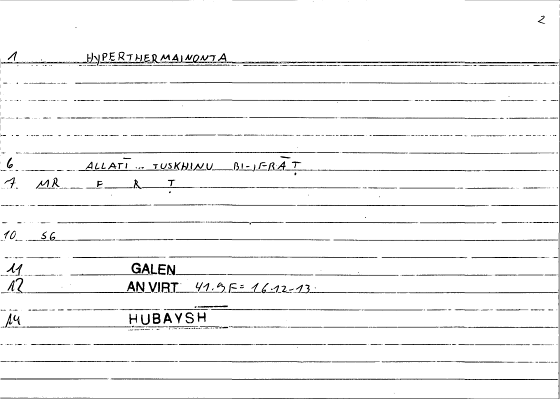 2
1 HYPERTHERMAINONTA
6 ALLATĪ ... TUSKHINU BI-IFRĀṬ
7. MR F R Ṭ
10 S6
11 GALEN
12 AN VIRT 41.9 F = 16.12-13.
14 HUBAYSH